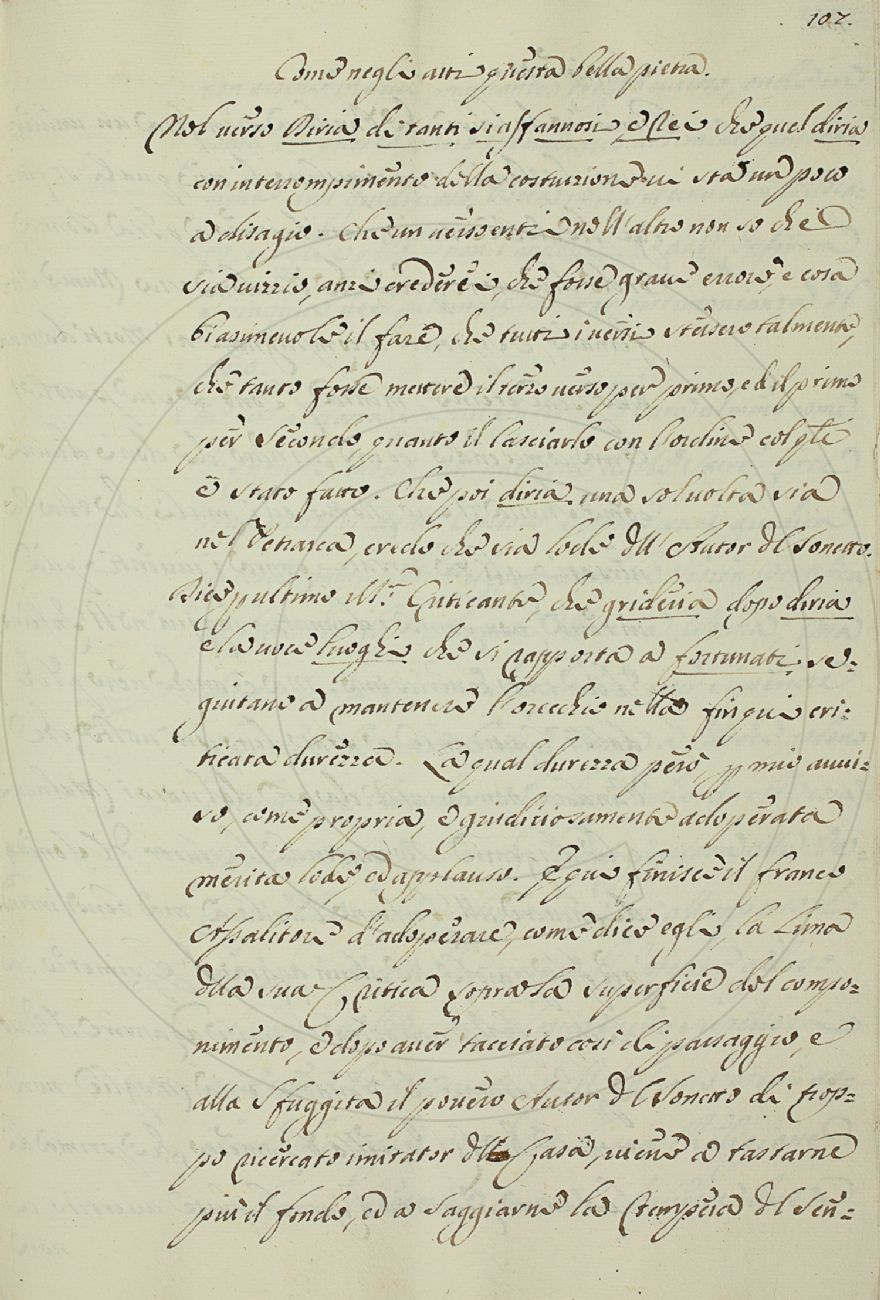 107.
Come negli atti questa bella pietra.
Nel verso Diria di tanti sì affannosi, e Rei che quel diria
con interrompimento della costruzione vi sta un poco
a disagio. Che un verso entri nell'altro non so che
sia vizzio, anzi crederei, che fosse grave errore, e cosa
biasimevole il fare, che tutti i versi stessero talmente,
che tanto fosse mettere il terzo verso per primo, ed il primo
per secondo, quanto il lasciarlo con l'ordine col q.le
è stato fatto. Che poi diria una sol volta sia
nel Petrarca, credo che sia lode dll' Autor dl Sonetto.
Dice p ultimo il S.r Criticante, che grideria dopo diria
e la voce luoghi che si rapporta a fortunati se=
guitano a mantenere l'orecchio nella fin qui cri=
ticata durezza. La qual durezza però, p mio avvi=
so, come propria, e giudiciosamente adoperata
merita lode, ed applauso. E qui finisce il franco
Assalitore d'adoperare, come dice egli, la Lima
dlla sua Critica sopra la superficie del compo=
nimento, e dopo aver tacciato così di passaggio, e
alla sfuggita il povero Autor dl Sonetto di trop=
po ricercato imitator dll Casa, viene a tastarne
più il fondo, ed a saggiarne la tempera dl sen=